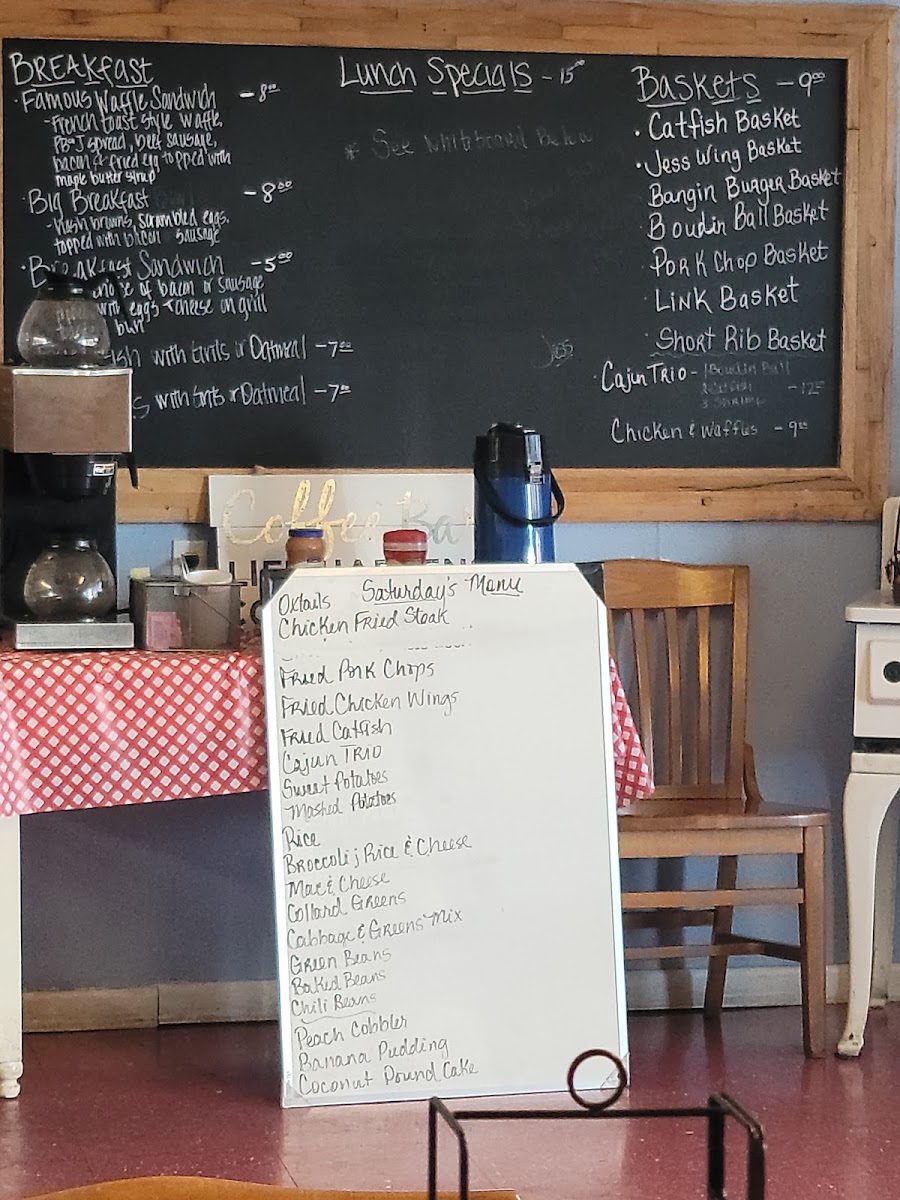 BREAKfAST
· Famous Waffle Sandwich - 8⁰⁰
- French toast style Waffle,
PB&J spread, beef sausage,
bacon & fried egg topped with
maple butter syrup
· Big Breakfast - 8⁰⁰
- Hash browns, scrambled eggs,
topped with bacon sausage
· Breakfast Sandwich - 5⁰⁰
of bacon or sausage
with eggs & cheese on grill
bun
with Grits or Oatmeal - 7⁰⁰
with Grits or Oatmeal - 7⁰⁰
Lunch Specials - 15⁰⁰
* See Whiteboard Below
Jess
Baskets - 9⁰⁰
· Catfish Basket
· Jess Wing Basket
Bangin Burger Basket
· Boudin Ball Basket
· Pork Chop Basket
· Link Basket
· Short Rib Basket
· Cajun Trio - 1 Boudin Ball
2 Catfish - 12⁰⁰
3 Shrimp
Chicken & Waffles - 9⁰⁰
Coffee Bar
Saturday's Menu
Oxtails
Chicken Fried Steak
Fried Pork Chops
Fried Chicken Wings
Fried Catfish
Cajun TRIO
Sweet Potatoes
Mashed Potatoes
Rice
Broccoli, Rice & Cheese
Mac & Cheese
Collard Greens
Cabbage & Greens Mix
Green Beans
Baked Beans
Chili Beans
Peach Cobbler
Banana Pudding
Coconut Pound Cake